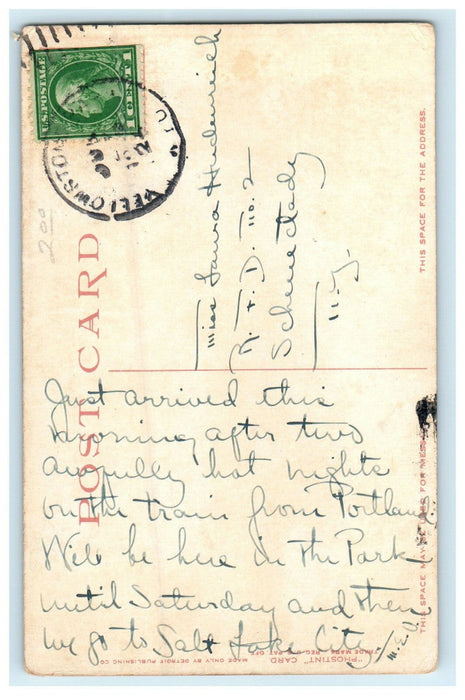 U.S. POSTAGE
1 CENT 1
YELLOWSTO
200
POST CARD
THIS SPACE FOR THE ADDRESS.
Miss Laura
R. F. D. No. 2
Schenectady
N.Y.
THIS SPACE MAY BE USED FOR MESS
Just arrived this
morning after two
awfully hot nights
on the train from Portland.
Will be here in the Park
until Saturday and then
we go to Salt Lake City.
M.E.V.
"PHOSTINT" CARD
TRADE MARK REG. U.S. PAT. OFF.
MADE ONLY BY DETROIT PUBLISHING CO